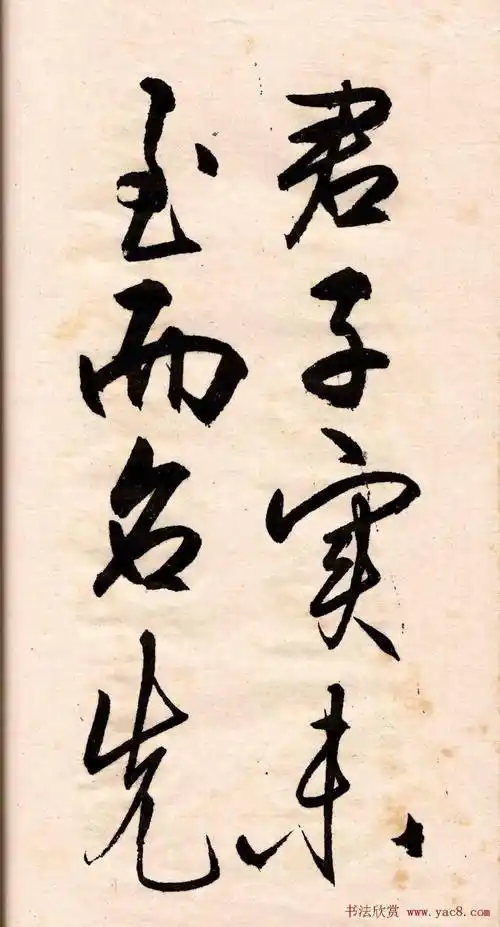 君子实未
至而名先
书法欣赏 www.yac8.com